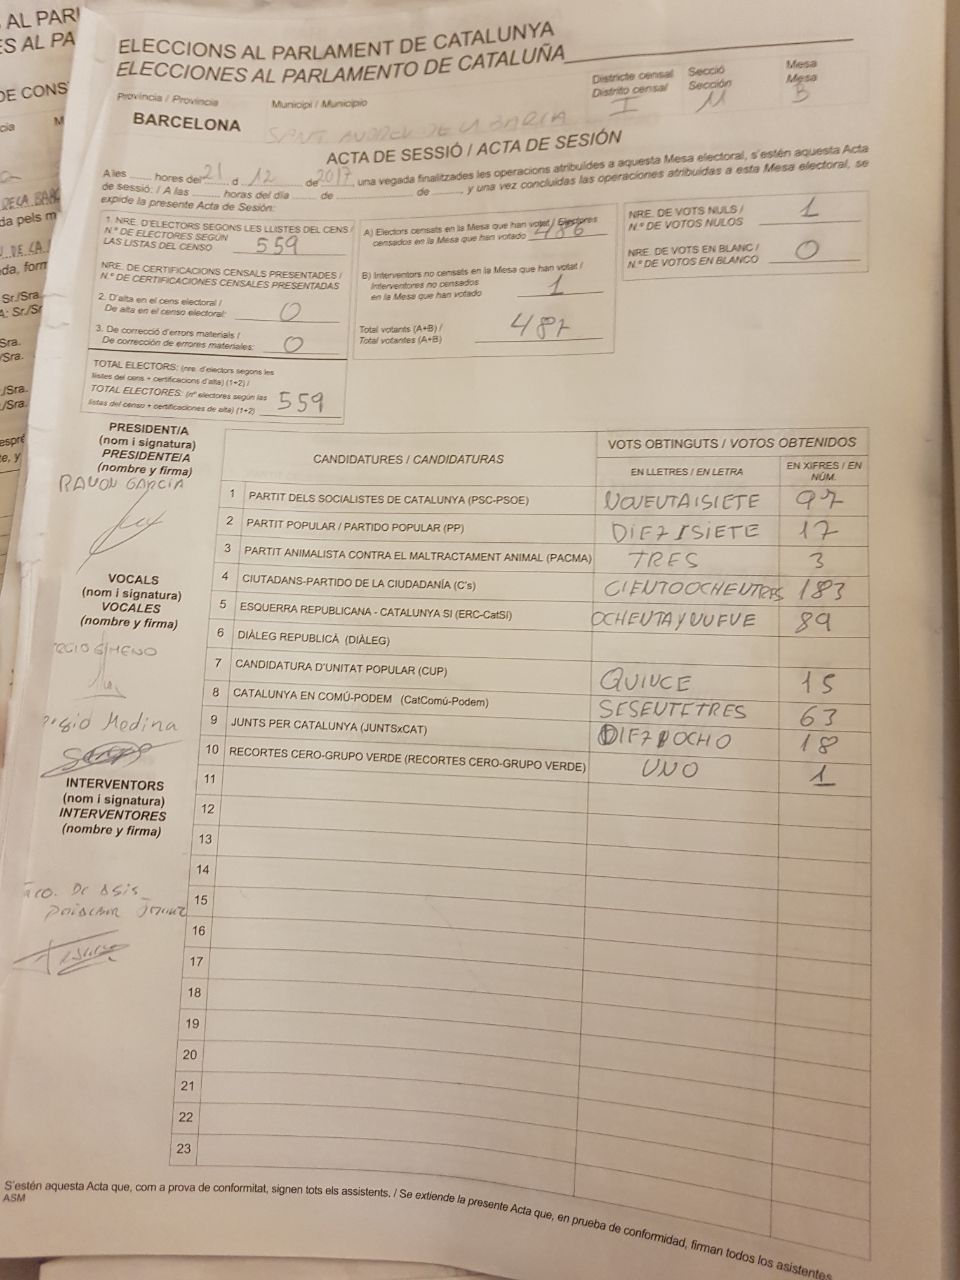 AL PARL
ES AL PA
DE CONS
ELECCIONS AL PARLAMENT DE CATALUNYA
ELECCIONES AL PARLAMENTO DE CATALUÑA
Província / Provincia
BARCELONA
Municipi / Municipio
SANT ANDREU DE LA BARCA
Districte censal
Distrito censal
I
Secció
Sección
11
Mesa
Mesa
B
ACTA DE SESSIÓ / ACTA DE SESIÓN
A les ........ hores del 21 d 12 de 2017, una vegada finalitzades les operacions atribuïdes a aquesta Mesa electoral, s'estén aquesta Acta
de sessió: / A las ........ horas del día ........ de ........ de ........, y una vez concluidas las operaciones atribuidas a esta Mesa electoral, se
expide la presente Acta de Sesión:
1. NRE. D'ELECTORS SEGONS LES LLISTES DEL CENS /
N.º DE ELECTORES SEGÚN
LAS LISTAS DEL CENSO 559
NRE. DE CERTIFICACIONS CENSALS PRESENTADES /
N.º DE CERTIFICACIONES CENSALES PRESENTADAS
2. D'alta en el cens electoral /
De alta en el censo electoral: 0
3. De correcció d'errors materials /
De corrección de errores materiales: 0
TOTAL ELECTORS: (nre. d'electors segons les
llistes del cens + certificacions d'alta) (1+2) /
TOTAL ELECTORES: (nº electores según las
listas del censo + certificaciones de alta) (1+2) 559
A) Electors censats en la Mesa que han votat / Electores
censados en la Mesa que han votado 486
B) Interventors no censats en la Mesa que han votat /
Interventores no censados
en la Mesa que han votado 1
Total votants (A+B) /
Total votantes (A+B) 487
NRE. DE VOTS NULS /
N.º DE VOTOS NULOS 1
NRE. DE VOTS EN BLANC /
N.º DE VOTOS EN BLANCO 0
PRESIDENT/A
(nom i signatura)
PRESIDENTE/A
(nombre y firma)
RAMON GARCIA
VOCALS
(nom i signatura)
VOCALES
(nombre y firma)
Medina
INTERVENTORS
(nom i signatura)
INTERVENTORES
(nombre y firma)
De Asis
CANDIDATURES / CANDIDATURAS
VOTS OBTINGUTS / VOTOS OBTENIDOS
EN LLETRES / EN LETRA
EN XIFRES / EN NÚM.
1 PARTIT DELS SOCIALISTES DE CATALUNYA (PSC-PSOE) NOVENTAISIETE 97
2 PARTIT POPULAR / PARTIDO POPULAR (PP) DIEZISIETE 17
3 PARTIT ANIMALISTA CONTRA EL MALTRACTAMENT ANIMAL (PACMA) TRES 3
4 CIUTADANS-PARTIDO DE LA CIUDADANÍA (C's) CIENTOOCHENTRES 183
5 ESQUERRA REPUBLICANA - CATALUNYA SI (ERC-CatSI) OCHENTAYNUEVE 89
6 DIÀLEG REPUBLICÀ (DIÀLEG)
7 CANDIDATURA D'UNITAT POPULAR (CUP) QUINCE 15
8 CATALUNYA EN COMÚ-PODEM (CatComú-Podem) SESENTETRES 63
9 JUNTS PER CATALUNYA (JUNTSxCAT) DIEZIOCHO 18
10 RECORTES CERO-GRUPO VERDE (RECORTES CERO-GRUPO VERDE) UNO 1
11
12
13
14
15
16
17
18
19
20
21
22
23
S'estén aquesta Acta que, com a prova de conformitat, signen tots els assistents. / Se extiende la presente Acta que, en prueba de conformidad, firman todos los asistentes.
ASM